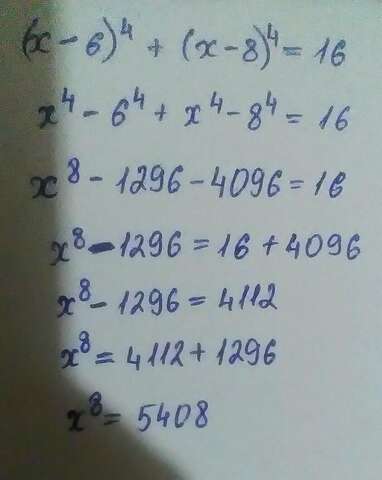 (x - 6)⁴ + (x - 8)⁴ = 16
x⁴ - 6⁴ + x⁴ - 8⁴ = 16
x⁸ - 1296 - 4096 = 16
x⁸ - 1296 = 16 + 4096
x⁸ - 1296 = 4112
x⁸ = 4112 + 1296
x⁸ = 5408